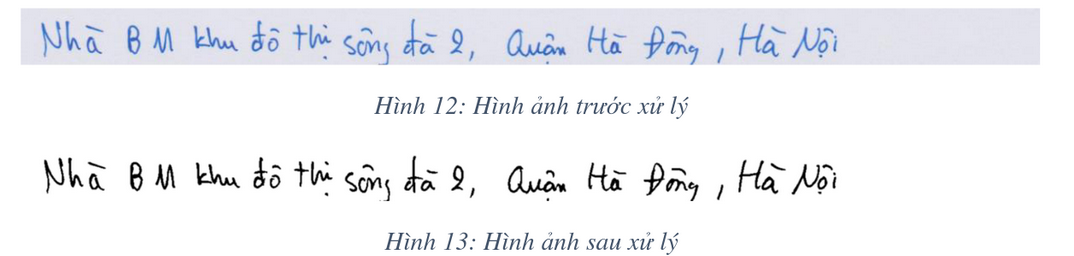 Nhà B M khu đô thị sông đà 2, Quận Hà Đông, Hà Nội
Hình 12: Hình ảnh trước xử lý
Nhà B M khu đô thị sông đà 2, Quận Hà Đông, Hà Nội
Hình 13: Hình ảnh sau xử lý